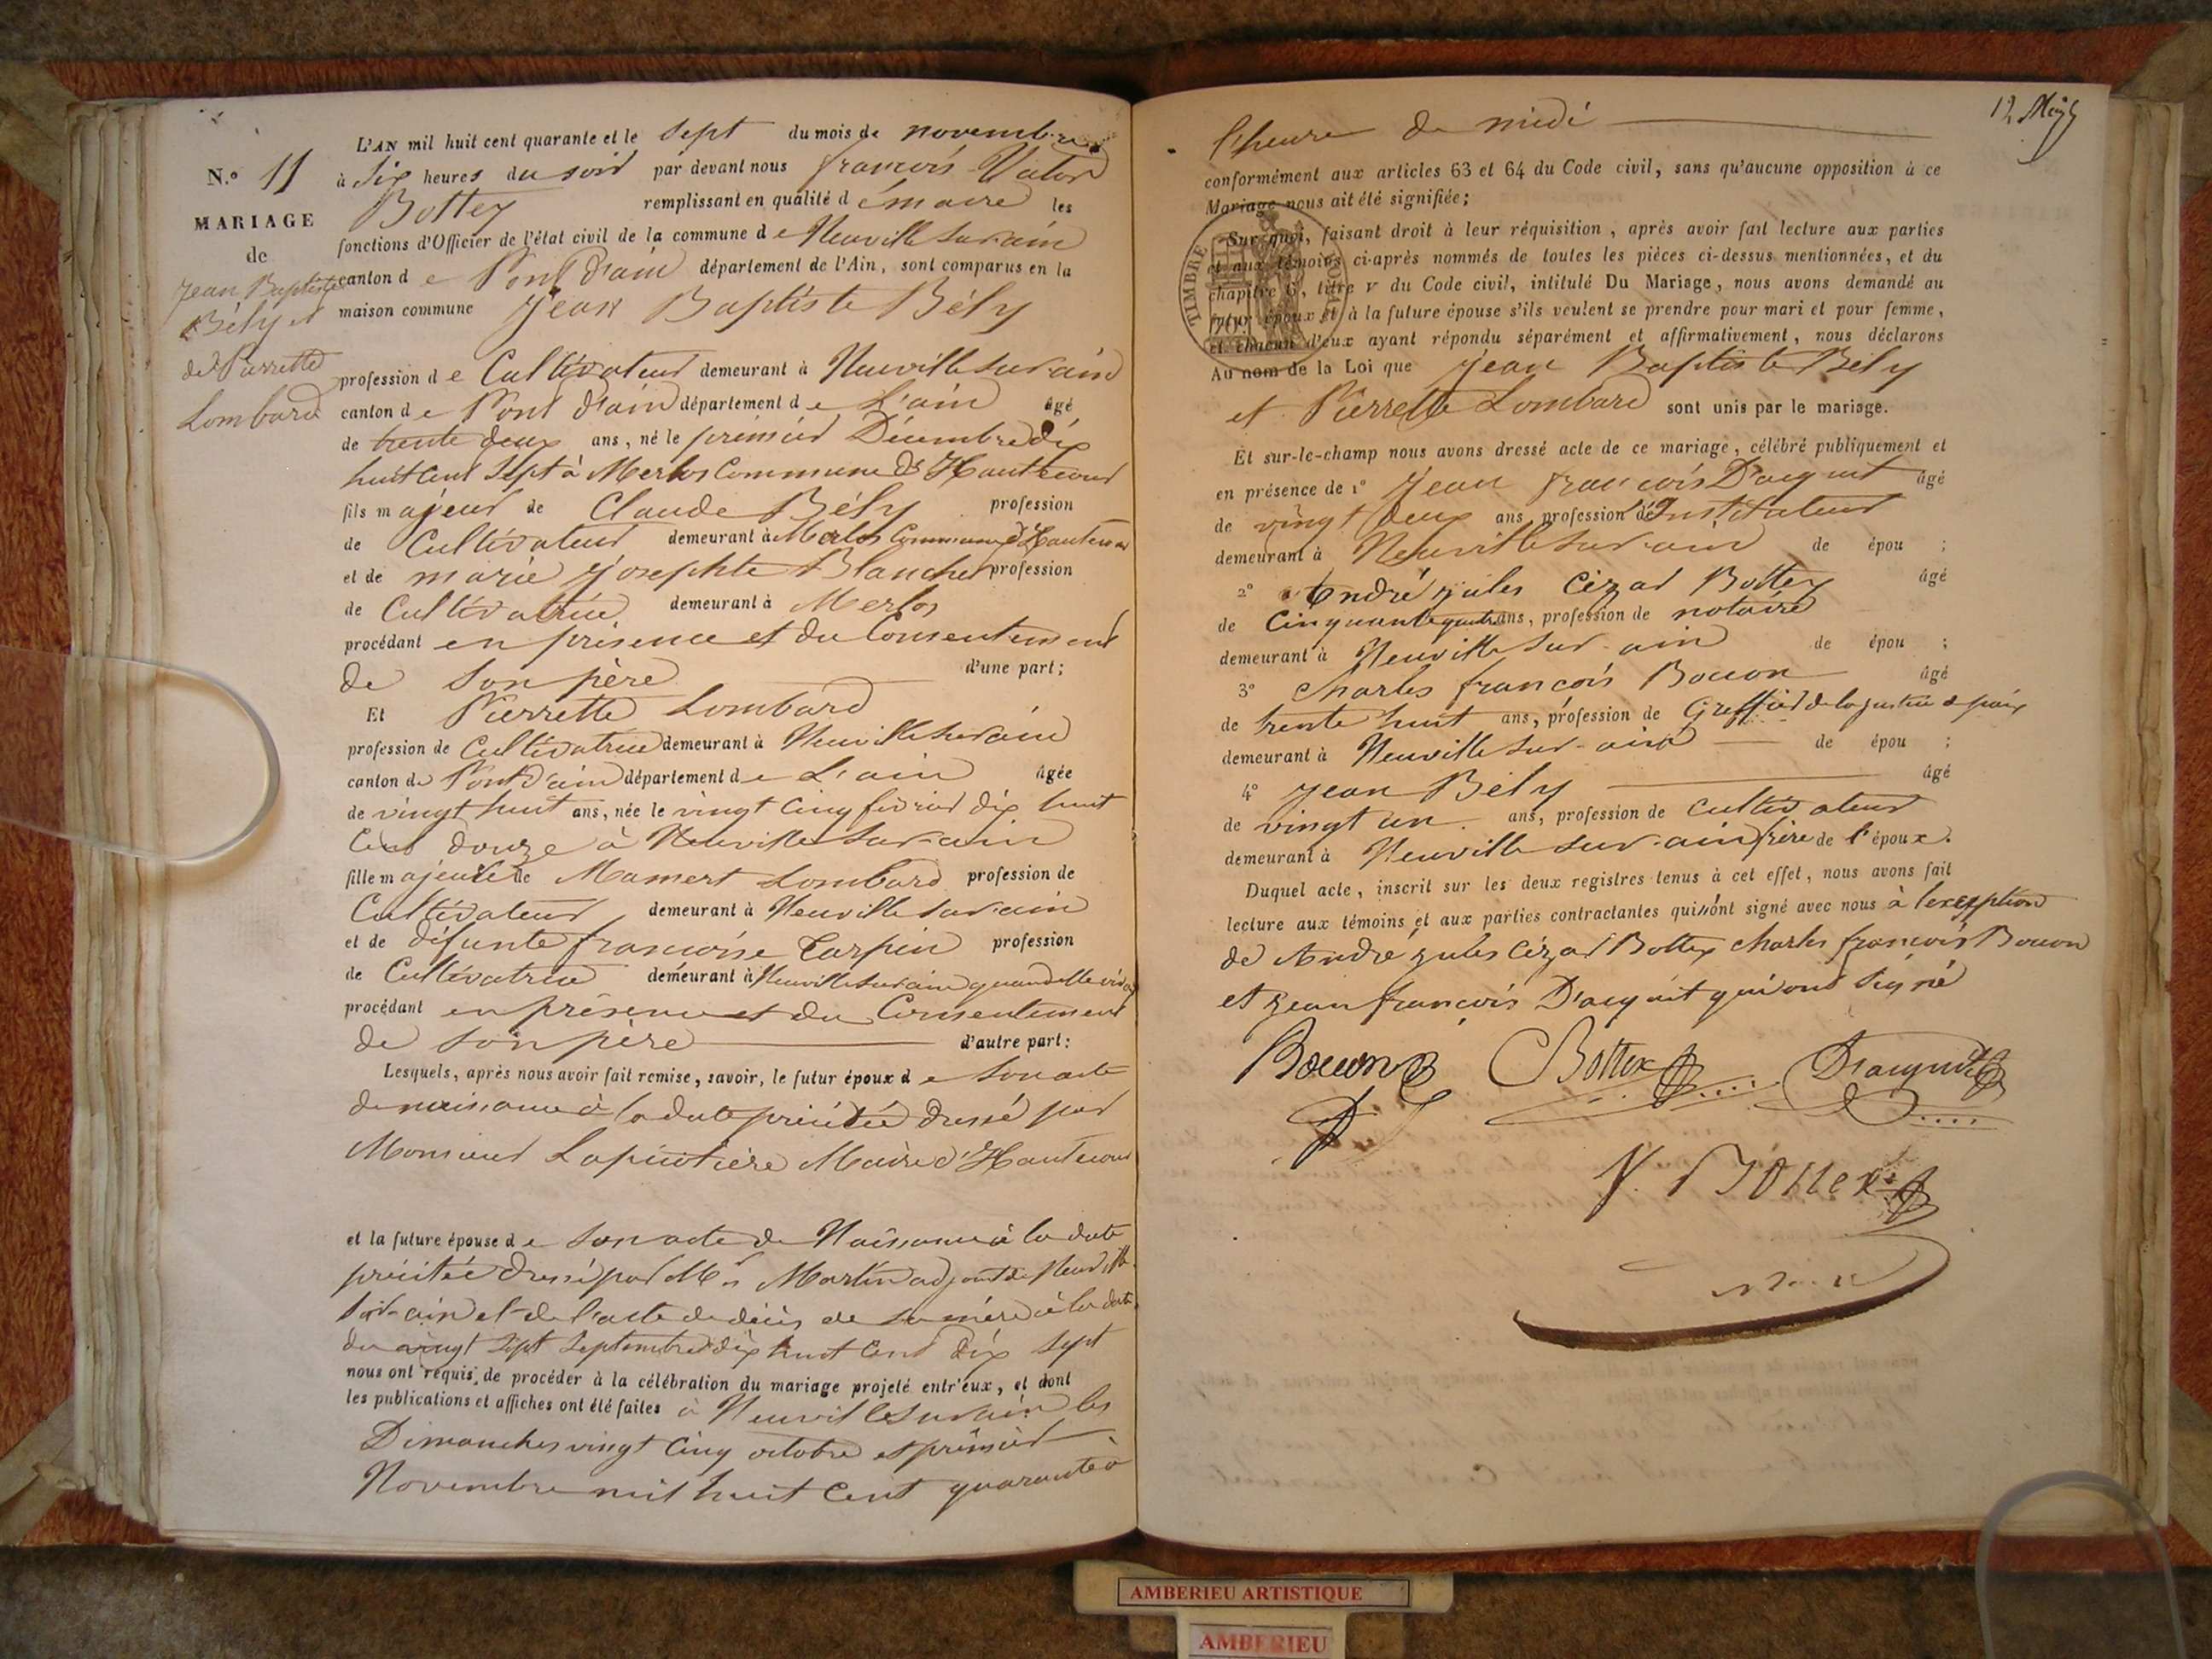 N.º 11
MARIAGE
de
Jean Baptiste
Bély et
de Pierrette
Lombard
L'AN mil huit cent quarante et le sept du mois de novembre
à six heures du soir par devant nous françois Victor
Bottex remplissant en qualité d e maire les
fonctions d'Officier de l'état civil de la commune d e Neuville sur ain
canton d e Pont d'ain département de l'Ain, sont comparus en la
maison commune Jean Baptiste Bély
profession d e Cultivateur demeurant à Neuville sur ain
canton d e Pont d'ain département d e L'ain âgé
de trente deux ans, né le premier Décembre dix
huit cent sept à Merlos Commune de Hautecour
fils majeur de Claude Bély profession
de Cultivateur demeurant à Merlos Commune d'Hautecour
et de marie Josephte Blanchet profession
de Cultivatrice demeurant à Merlos
procédant en présence et du Consentement
de son père d'une part;
Et Pierrette Lombard
profession de Cultivatrice demeurant à Neuville sur ain
canton de Pont d'ain département d e L'ain âgée
de vingt huit ans, née le vingt cinq février dix huit
Cent douze à Neuville sur-ain
fille majeure de Mamert Lombard profession de
Cultivateur demeurant à Neuville sur ain
et de défunte françoise Carpin profession
de Cultivatrice demeurant à Neuville sur ain quand elle vivait
procédant en présence et du Consentement
de son père d'autre part:
Lesquels, après nous avoir fait remise, savoir, le futur époux d e son acte
de naissance à la date précitée dressé par
Monsieur Lapuotière Maire d'Hautecour
et la future épouse d e son acte de Naissance à la date
précitée dressé par Mr Martin adjoint de Neuville
sur-ain et de l'acte de décès de sa mère à la date
du vingt sept Septembre dix huit Cent dix sept
nous ont requis, de procéder à la célébration du mariage projeté entr'eux, et dont
les publications et affiches ont été faites à Neuville sur ain les
Dimanches vingt cinq octobre et premier
Novembre mil huit cent quarante à
l'heure de midi
conformément aux articles 63 et 64 du Code civil, sans qu'aucune opposition à ce
Mariage nous ait été signifiée;
Sur quoi, faisant droit à leur réquisition, après avoir fait lecture aux parties
et aux témoins ci-après nommés de toutes les pièces ci-dessus mentionnées, et du
chapitre 6, titre v du Code civil, intitulé Du Mariage, nous avons demandé au
futur époux et à la future épouse s'ils veulent se prendre pour mari et pour femme,
et chacun d'eux ayant répondu séparément et affirmativement, nous déclarons
Au nom de la Loi que Jean Baptiste Bély
et Pierrette Lombard sont unis par le mariage.
Et sur-le-champ nous avons dressé acte de ce mariage, célébré publiquement et
en présence de 1º Jean françois D'acquit âgé
de vingt deux ans, profession d'Instituteur
demeurant à Neuville sur-ain de épou ;
2º André Jules Cézar Bottex âgé
de Cinquante quatre ans, profession de notaire
demeurant à Neuville sur-ain de épou ;
3º Charles françois Bouon âgé
de trente huit ans, profession de Greffier de la justice de paix
demeurant à Neuville sur-ain de épou ;
4º Jean Bély âgé
de vingt un ans, profession de Cultivateur
demeurant à Neuville sur-ain frère de l'époux.
Duquel acte, inscrit sur les deux registres tenus à cet effet, nous avons fait
lecture aux témoins et aux parties contractantes qui n'ont signé avec nous à l'exception
de André Jules Cézar Bottex Charles françois Bouon
et Jean françois D'acquit qui ont signé
Bouon Bottex D'acquit
V. Bottex
TIMBRE